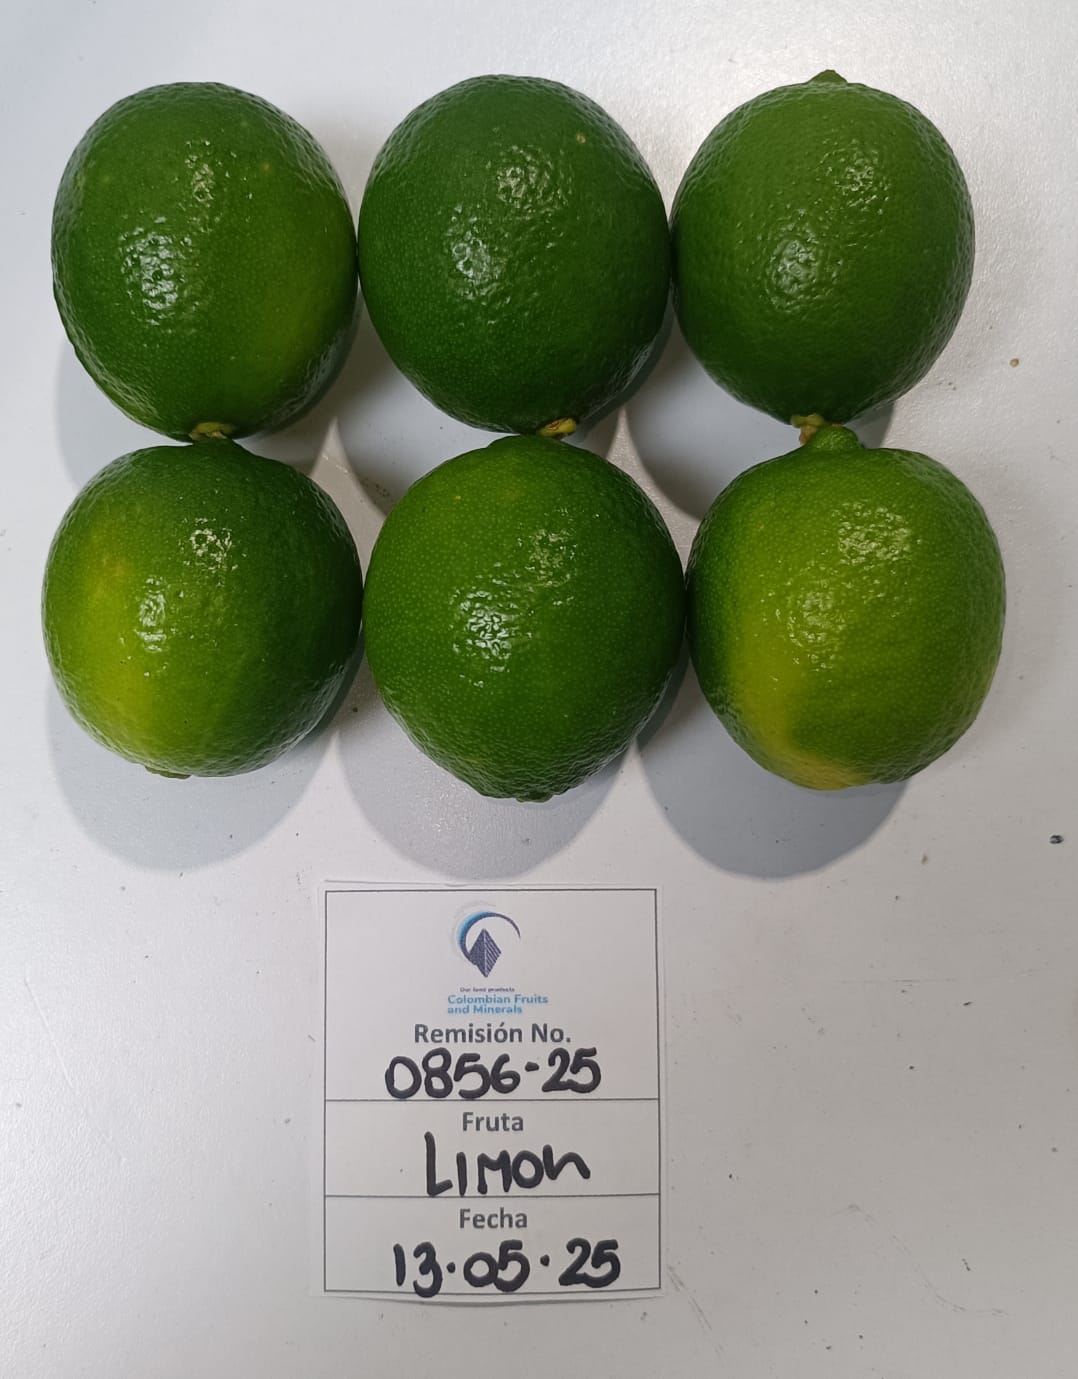 Our land products
Colombian Fruits
and Minerals
Remisión No.
0856-25
Fruta
LIMON
Fecha
13.05.25